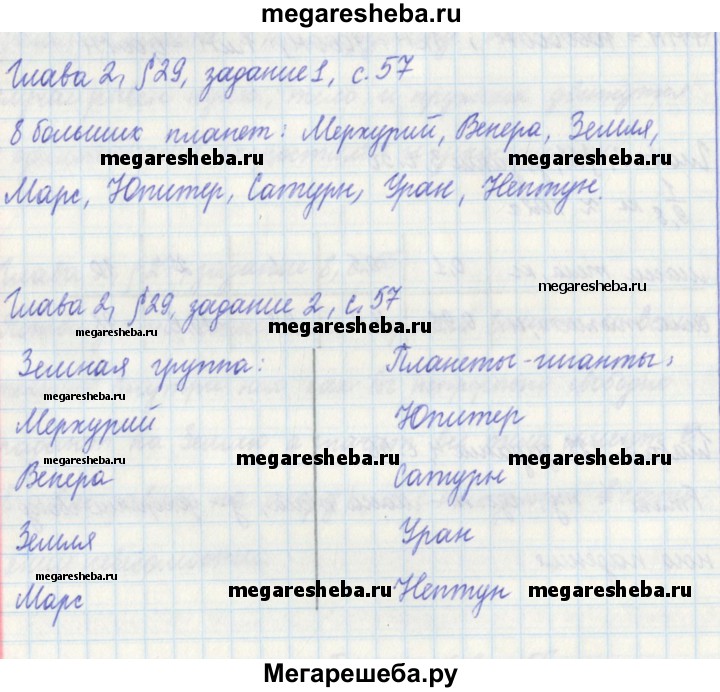 megaresheba.ru
Глава 2, §29, задание 1, с. 57
8 больших планет: Меркурий, Венера, Земля,
megaresheba.ru megaresheba.ru megaresheba.ru
Марс, Юпитер, Сатурн, Уран, Нептун.
megaresheba.ru
Глава 2, §29, задание 2, с. 57
megaresheba.ru megaresheba.ru megaresheba.ru
Земная группа: Планеты-гиганты:
megaresheba.ru
Меркурий Юпитер
megaresheba.ru megaresheba.ru megaresheba.ru
Венера Сатурн
Земля Уран
megaresheba.ru megaresheba.ru megaresheba.ru
Марс Нептун
Мегарешеба.ру